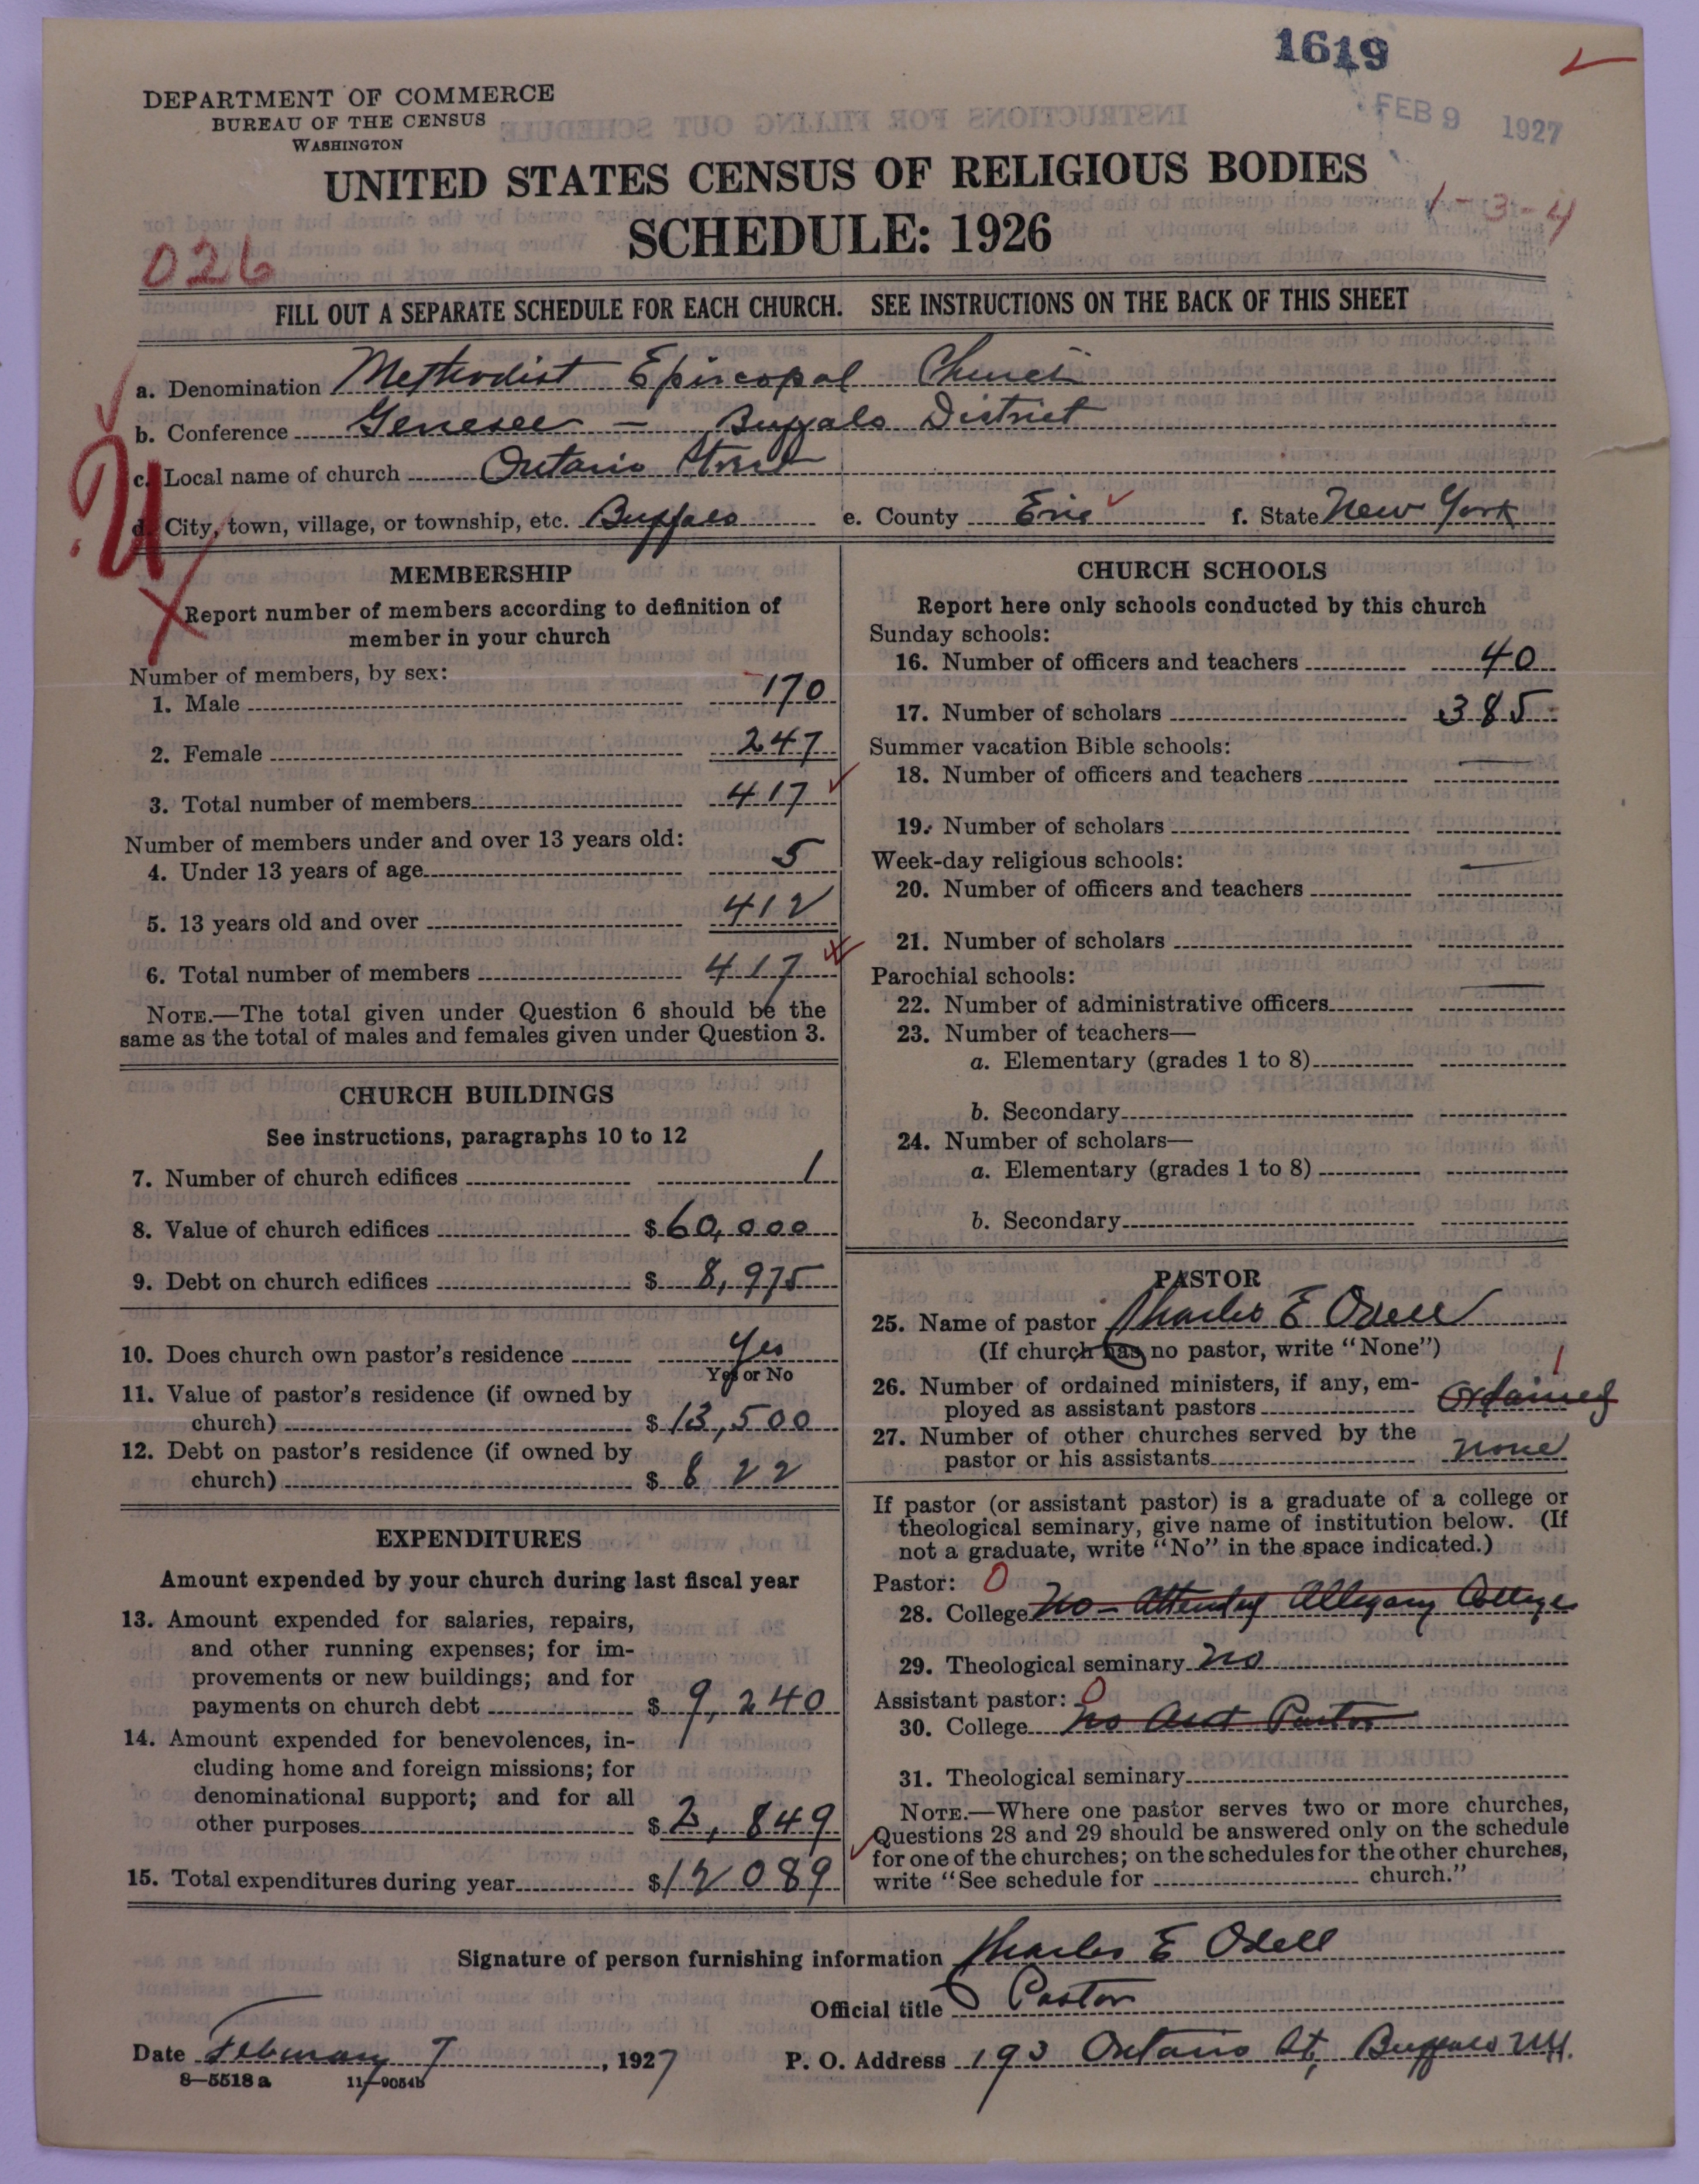 1619
FEB 9 1927
DEPARTMENT OF COMMERCE
BUREAU OF THE CENSUS
WASHINGTON
UNITED STATES CENSUS OF RELIGIOUS BODIES
SCHEDULE: 1926
1-3-4
026
FILL OUT A SEPARATE SCHEDULE FOR EACH CHURCH. SEE INSTRUCTIONS ON THE BACK OF THIS SHEET
a. Denomination Methodist Episcopal Church
b. Conference Genesee - Buffalo District
c. Local name of church Ontario Street
d. City, town, village, or township, etc. Buffalo e. County Erie f. State New York
MEMBERSHIP
Report number of members according to definition of
member in your church
Number of members, by sex:
1. Male 170
2. Female 247
3. Total number of members 417
Number of members under and over 13 years old:
4. Under 13 years of age 5
5. 13 years old and over 412
6. Total number of members 417
NOTE.—The total given under Question 6 should be the
same as the total of males and females given under Question 3.
CHURCH BUILDINGS
See instructions, paragraphs 10 to 12
7. Number of church edifices 1
8. Value of church edifices $ 60,000
9. Debt on church edifices $ 8,975
10. Does church own pastor's residence Yes
Yes or No
11. Value of pastor's residence (if owned by
church) $ 13,500
12. Debt on pastor's residence (if owned by
church) $ 822
EXPENDITURES
Amount expended by your church during last fiscal year
13. Amount expended for salaries, repairs,
and other running expenses; for im-
provements or new buildings; and for
payments on church debt $ 9,240
14. Amount expended for benevolences, in-
cluding home and foreign missions; for
denominational support; and for all
other purposes $ 2,849
15. Total expenditures during year $ 12 089
CHURCH SCHOOLS
Report here only schools conducted by this church
Sunday schools:
16. Number of officers and teachers 40
17. Number of scholars 385
Summer vacation Bible schools:
18. Number of officers and teachers
19. Number of scholars
Week-day religious schools:
20. Number of officers and teachers
21. Number of scholars
Parochial schools:
22. Number of administrative officers
23. Number of teachers—
a. Elementary (grades 1 to 8)
b. Secondary
24. Number of scholars—
a. Elementary (grades 1 to 8)
b. Secondary
PASTOR
25. Name of pastor Charles E Odell
(If church has no pastor, write "None")
26. Number of ordained ministers, if any, em-
ployed as assistant pastors Ordained 1
27. Number of other churches served by the
pastor or his assistants none
If pastor (or assistant pastor) is a graduate of a college or
theological seminary, give name of institution below. (If
not a graduate, write "No" in the space indicated.)
Pastor: 0
28. College No - Attended Allegany College
29. Theological seminary No
Assistant pastor: 0
30. College No Asst Pastor
31. Theological seminary
NOTE.—Where one pastor serves two or more churches,
Questions 28 and 29 should be answered only on the schedule
for one of the churches; on the schedules for the other churches,
write "See schedule for church."
Signature of person furnishing information Charles E Odell
Official title Pastor
Date February 7, 1927 P. O. Address 193 Ontario St, Buffalo N.Y.
8—5518 a 11—9054b